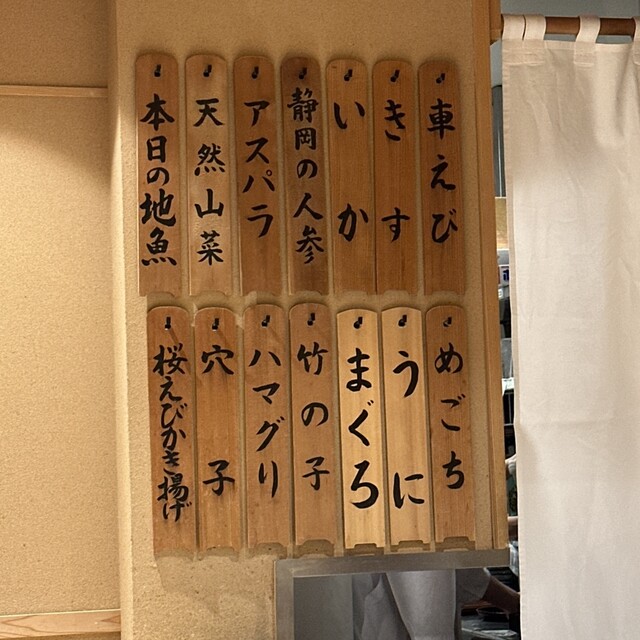 車えび
きす
いか
静岡の人参
アスパラ
天然山菜
本日の地魚
めごち
うに
まぐろ
竹の子
ハマグリ
穴子
桜えびかき揚げ